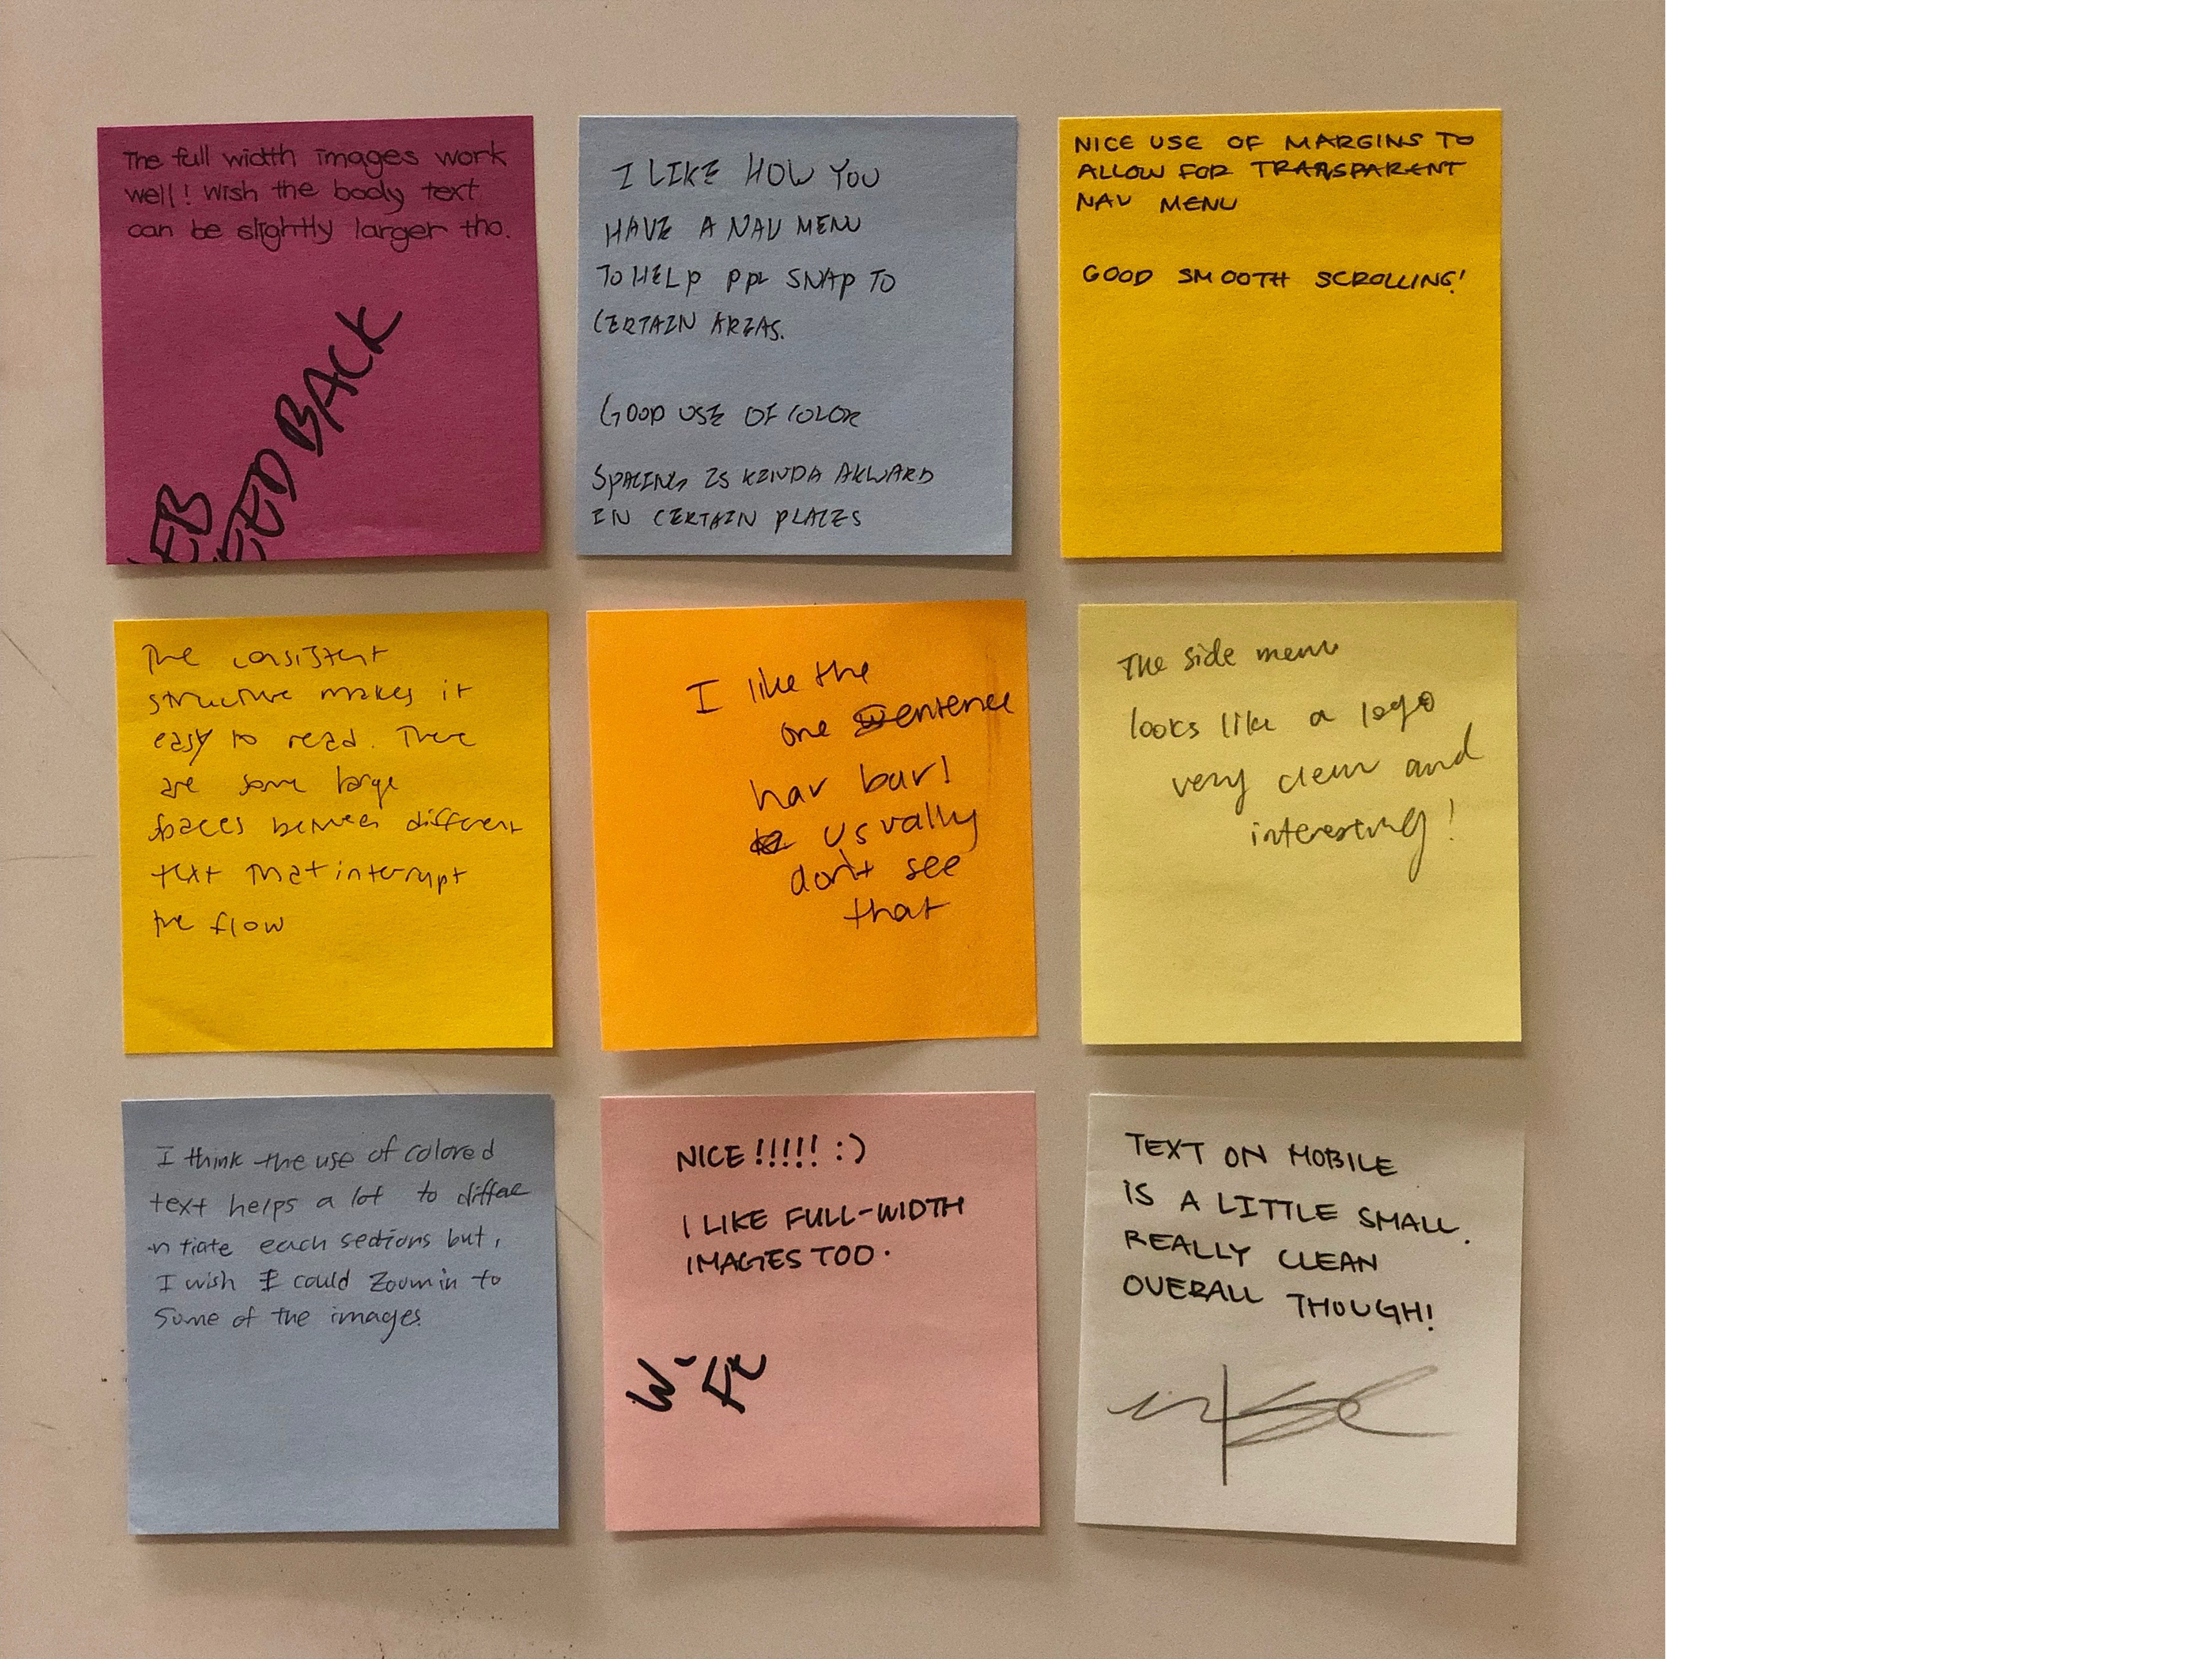 The full width images work
well! Wish the body text
can be slightly larger tho.
FEEDBACK
I LIKE HOW YOU
HAVE A NAV MENU
TO HELP PPL SNAP TO
CERTAIN AREAS.
GOOD USE OF COLOR
SPACING IS KINDA AKWARD
IN CERTAIN PLACES
NICE USE OF MARGINS TO
ALLOW FOR TRANSPARENT
NAV MENU
GOOD SMOOTH SCROLLING!
The consistent
structure makes it
easy to read. There
are some large
spaces between different
text that interrupt
the flow
I like the
one sentence
nav bar!
usually
don't see
that
The side menu
looks like a logo
very clear and
interesting!
I think the use of colored
text helps a lot to differe
ntiate each sections but,
I wish I could zoom in to
some of the images.
NICE!!!!! :)
I LIKE FULL-WIDTH
IMAGES TOO.
TEXT ON MOBILE
IS A LITTLE SMALL.
REALLY CLEAN
OVERALL THOUGH!